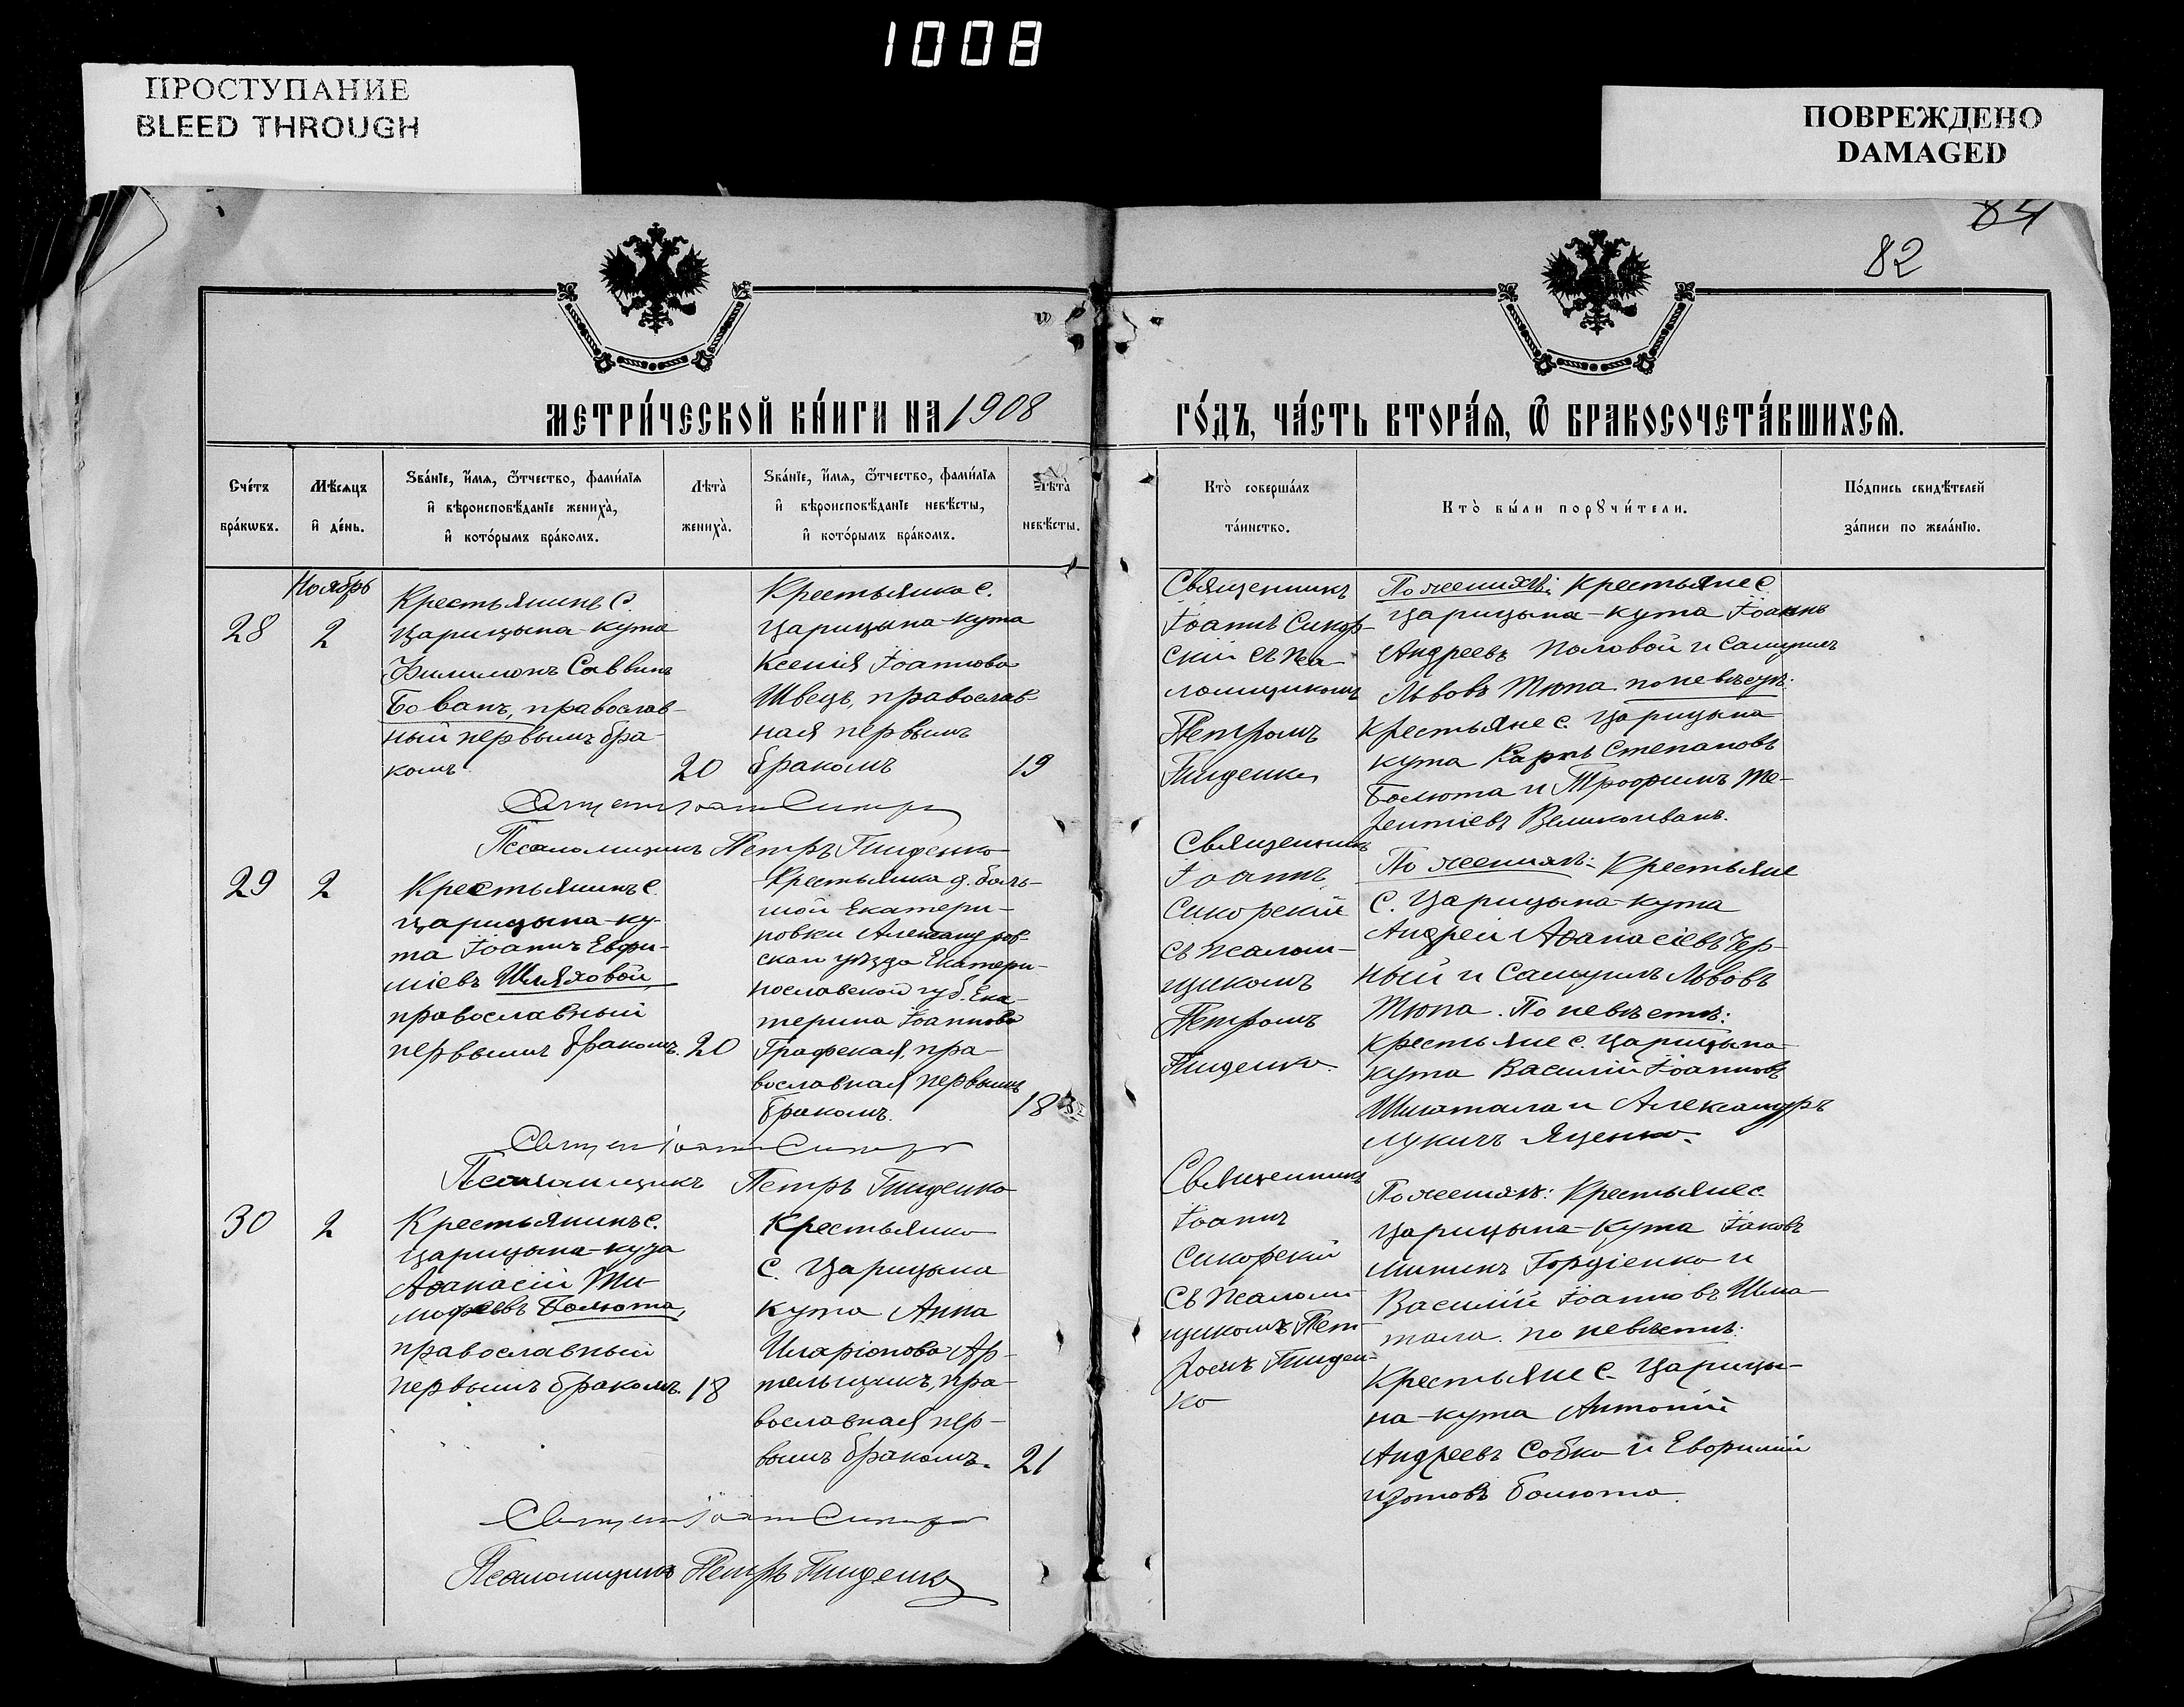 1008
ПРОСТУПАНИЕ
BLEED THROUGH
ПОВРЕЖДЕНО
DAMAGED
84
82
МЕТРИ́ЧЕСКОЙ КНИ́ГИ НА 1908
ГО́ДЪ, ЧА́СТЬ ВТОРА́Ѧ, Ѿ БРАКОСОЧЕТА́ВШИХСѦ.
Сче́тъ
бра́кѡвъ.
Мѣ́сѧцъ
и҆ де́нь.
Ѕва́нїе, и҆́мѧ, ѻ҆́тчество, фами́лїѧ
и҆ вѣроисповѣ́данїе жениха̀,
и҆ кото́рымъ бра́комъ.
Лѣта̀
жениха̀.
Ѕва́нїе, и҆́мѧ, ѻ҆́тчество, фами́лїѧ
и҆ вѣроисповѣ́данїе невѣ́сты,
и҆ кото́рымъ бра́комъ.
Лѣта̀
невѣ́сты.
Кто̀ соверша́лъ
та́инство.
Кто̀ бы́ли порꙋчи́тели.
По́дпись свидѣ́телей
за́писи по жела́нїю.
Ноябрь
28
2
Крестьянинъ с.
Царицына-Кута
Филимонъ Саввинъ
Бован​ъ, православ-
ный первымъ бра-
комъ
20
Крестьянка с.
Царицына-Кута
Ксенія Іоаннова
Швецъ, православ-
ная первымъ
бракомъ
19
Священникъ
Іоаннъ Сикор-
скій съ пса-
ломщикомъ
Петромъ
По женихѣ: Крестьяне с.
Царицына-Кута Іоаннъ
Андреевъ Половой и Самуилъ
Львовъ Тюпа по невѣстѣ:
Крестьяне с. Царицына
Кута Карпъ Степановъ
Балюта и Трофимъ Те-
рентіевъ Великоиван​ъ.
Псаломщикъ Петръ
29
2
Крестьянинъ с.
Царицына-Ку-
та Іоаннъ Евфи-
міевъ Шляховой,
православный
первымъ бракомъ.
20
Крестьянка д. Боль-
шой Екатери-
новки Александров-
скаго уѣзда Екатери-
нославской губ. Ека-
терина Іоаннова
Графская, пра-
вославная первымъ
бракомъ.
18
Священникъ
Іоаннъ
Сикорскій
съ псалом-
щикомъ
Петромъ
По женихѣ: Крестьяне
с. Царицына-Кута
Андрей Аѳанасіевъ Чер-
ный и Самуилъ Львовъ
Тюпа. По невѣстѣ:
Крестьяне с. Царицына
Кута Василій Іоанновъ
Шматала и Александръ
Лукичъ Яценко.
Псаломщикъ Петръ
30
2
Крестьянинъ с.
Царицына-Кута
Аѳанасій Ти-
мофеевъ Балюта,
православный
первымъ бракомъ.
18
Крестьянка
с. Царицына
Кута Анна
Иларіонова Ар-
тельщикъ, пра-
вославная пер-
вымъ бракомъ.
21
Священникъ
Іоаннъ
Сикорскій
съ псалом-
щикомъ Пет-
ромъ
По женихѣ: Крестьяне с.
Царицына-Кута Іаковъ
Мининъ Гордіенко и
Василій Іоанновъ Шма-
тала. по невѣстѣ:
Крестьяне с. Царицы-
на-Кута Антоній
Андреевъ Собко и Евфимій
Изотовъ Балюта.
Псаломщикъ Петръ